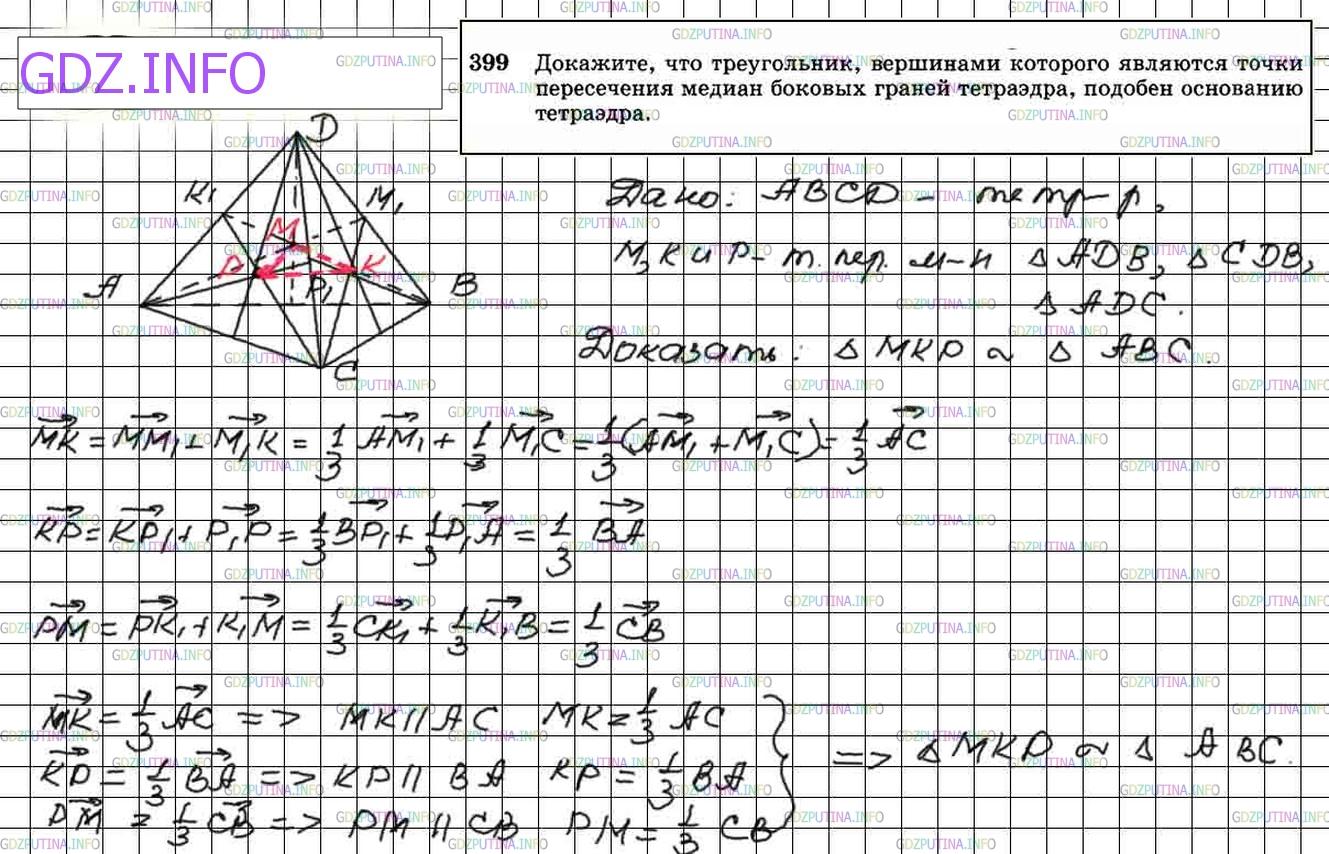 GDZ.INFO
399 Докажите, что треугольник, вершинами которого являются точки
пересечения медиан боковых граней тетраэдра, подобен основанию
тетраэдра.
D
K₁ M₁
M
P K
A P₁ B
C
Дано: ABCD – тетр-р,
M, K и P – т. пер. м-н △ADB, △CDB,
△ADC.
Доказать: △MKP ∾ △ABC.
MK⃗ = MM₁⃗ + M₁K⃗ = 1/3 AM₁⃗ + 1/3 M₁C⃗ = 1/3 (AM₁⃗ + M₁C⃗) = 1/3 AC⃗
KP⃗ = KP₁⃗ + P₁P⃗ = 1/3 BP₁⃗ + 1/3 P₁A⃗ = 1/3 BA⃗
PM⃗ = PK₁⃗ + K₁M⃗ = 1/3 CK₁⃗ + 1/3 K₁B⃗ = 1/3 CB⃗
MK⃗ = 1/3 AC⃗ => MK || AC MK = 1/3 AC
KP⃗ = 1/3 BA⃗ => KP || BA KP = 1/3 BA
PM⃗ = 1/3 CB⃗ => PM || CB PM = 1/3 CB
=> △MKP ∾ △ABC.
GDZPUTINA.INFO